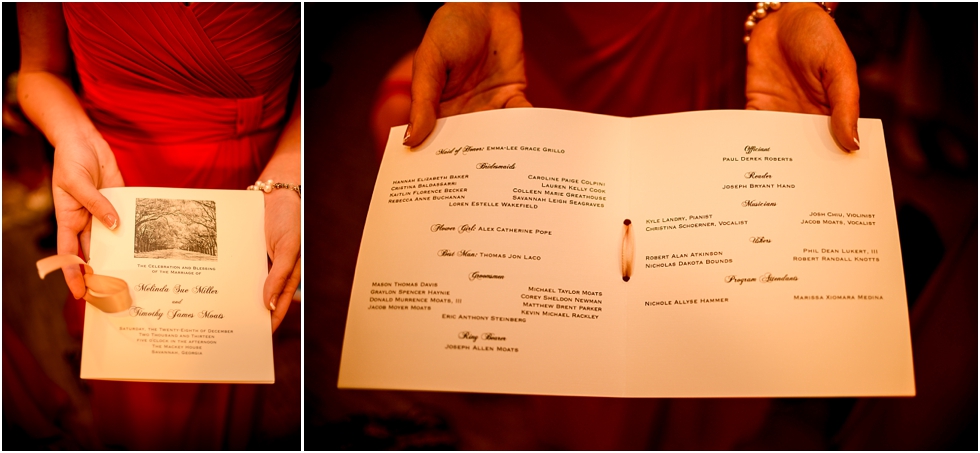 The Celebration and Blessing
of the Marriage of
Melinda Sue Miller
and
Timothy James Moats
Saturday, the Twenty-Eighth of December
Two Thousand and Thirteen
Five o'Clock in the Afternoon
The Mackey House
Savannah, Georgia
Maid of Honor: Emma-Lee Grace Grillo
Bridesmaids
Hannah Elizabeth Baker
Cristina Baldassarri
Kaitlin Florence Becker
Rebecca Anne Buchanan
Caroline Paige Colpini
Lauren Kelly Cook
Colleen Marie Greathouse
Savannah Leigh Seagraves
Loren Estelle Wakefield
Flower Girl: Alex Catherine Pope
Best Man: Thomas Jon Laco
Groomsmen
Mason Thomas Davis
Graylon Spencer Haynie
Donald Murrence Moats, III
Jacob Moyer Moats
Michael Taylor Moats
Corey Sheldon Newman
Matthew Brent Parker
Kevin Michael Rackley
Eric Anthony Steinberg
Ring Bearer
Joseph Allen Moats
Officiant
Paul Derek Roberts
Reader
Joseph Bryant Hand
Musicians
Kyle Landry, Pianist
Christina Schoerner, Vocalist
Josh Chiu, Violinist
Jacob Moats, Vocalist
Ushers
Robert Alan Atkinson
Nicholas Dakota Bounds
Phil Dean Lukert, III
Robert Randall Knotts
Program Attendants
Nichole Allyse Hammer
Marissa Xiomara Medina